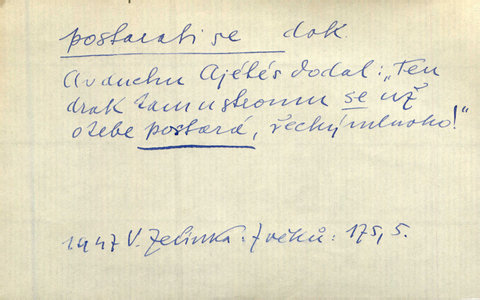 postarati se dok.
A v duchu Ajétés dodal: „Ten
drak tam u stromu se už
o tebe postará, řecký mluvko!"
1947 V. Zelinka: Z věků: 175, 5.